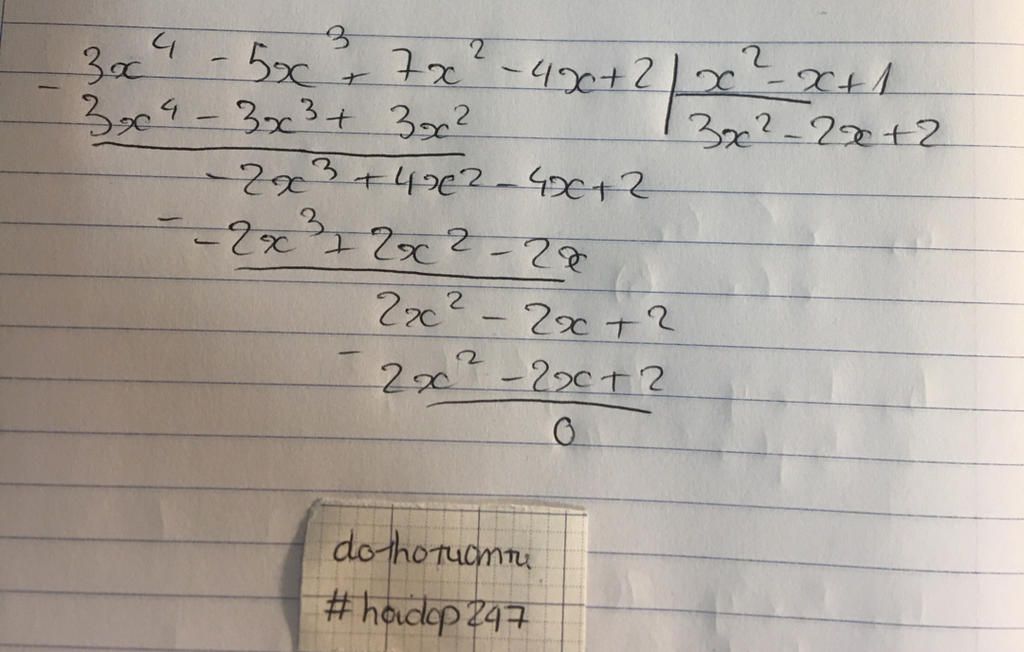 3x⁴ - 5x³ + 7x² - 4x + 2 | x² - x + 1
- 3x⁴ - 3x³ + 3x² | 3x² - 2x + 2
-2x³ + 4x² - 4x + 2
- -2x³ + 2x² - 2x
2x² - 2x + 2
- 2x² - 2x + 2
0
#hoidap247